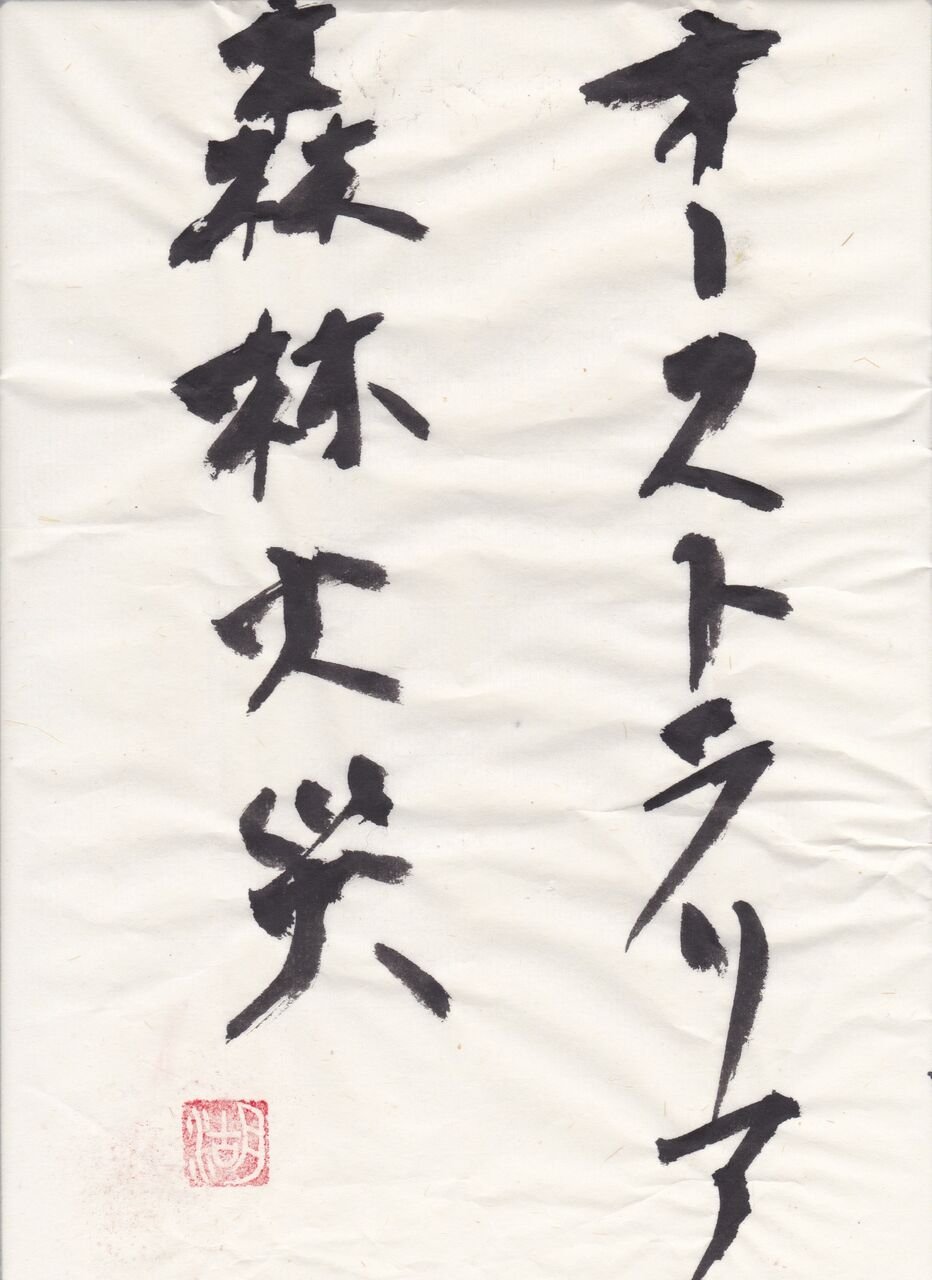 オーストラリア
森林火災